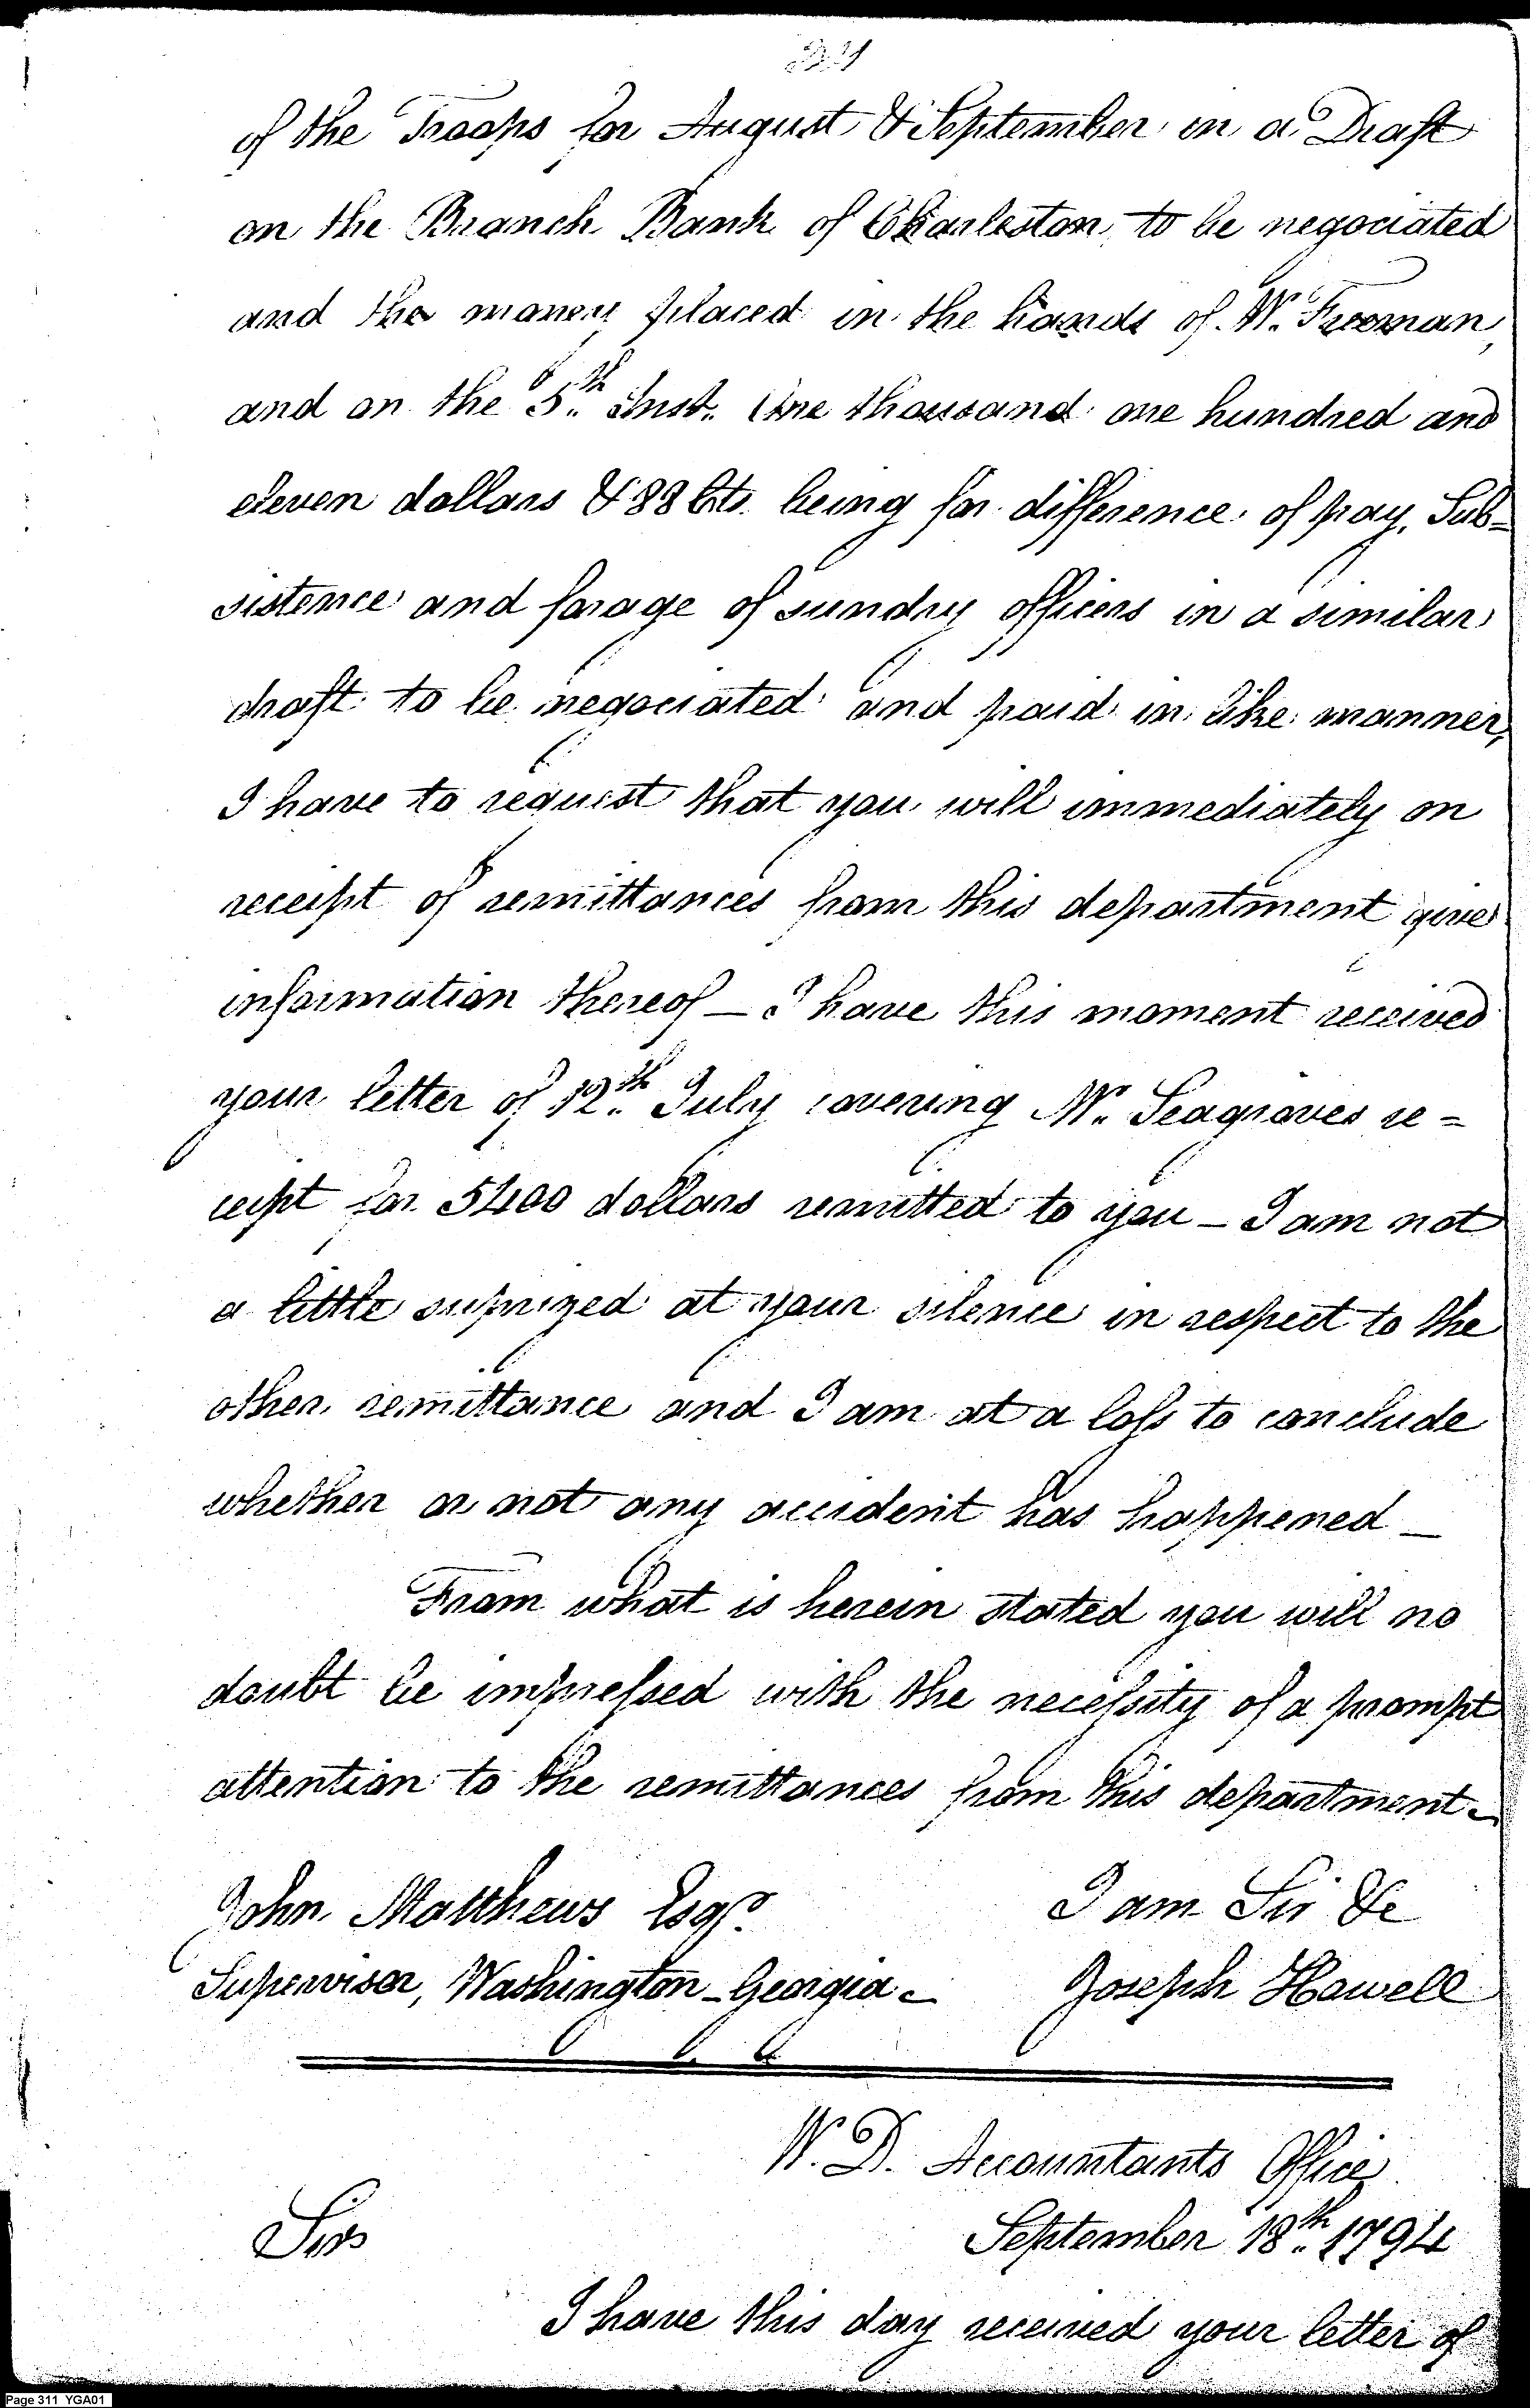 of the Troops for August & September in a Draft
on the Branch Bank of Charleston, to be negociated
and the money placed in the hands of Mr. Freeman,
and on the 5.th Inst. One thousand one hundred and
eleven dollars & 88 Cts. being for difference of pay, Sub=
sistence and forage of sundry officers in a similar
draft to be negociated and paid in like manner,
I have to request that you will immediately on
receipt of remittances from this department give
information thereof — I have this moment received
your letter of 12.th July covering Mr. Seagroves re=
ceipt for 5400 dollars remitted to you — I am not
a little suprized at your silence in respect to the
other remittance and I am at a loss to conclude
whether or not any accident has happened —
From what is herein stated you will no
doubt be impressed with the necessity of a prompt
attention to the remittances from this department.
John Matthews Esqr. I am Sir &c
Supervisor, Washington - Georgia. Joseph Howell
W. D. Accountants Office
September 18.th 1794
Sir
I have this day received your letter of
Page 311 YGA01